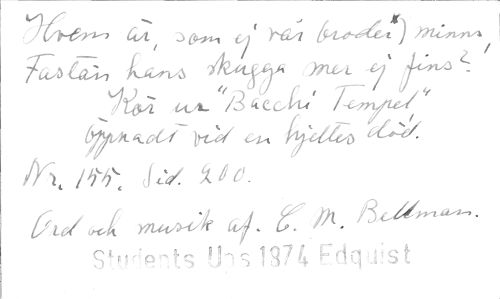 Hvem är, som ej vår broder*) minns,
Fastän hans skugga mer ej fins?
Kör ur "Bacchi Tempel,"
öppnadt vid en hjeltes död.
Nr. 155. Sid. 200.
Ord och musik af. C. M. Bellman.
Students Ups 1874 Edquist